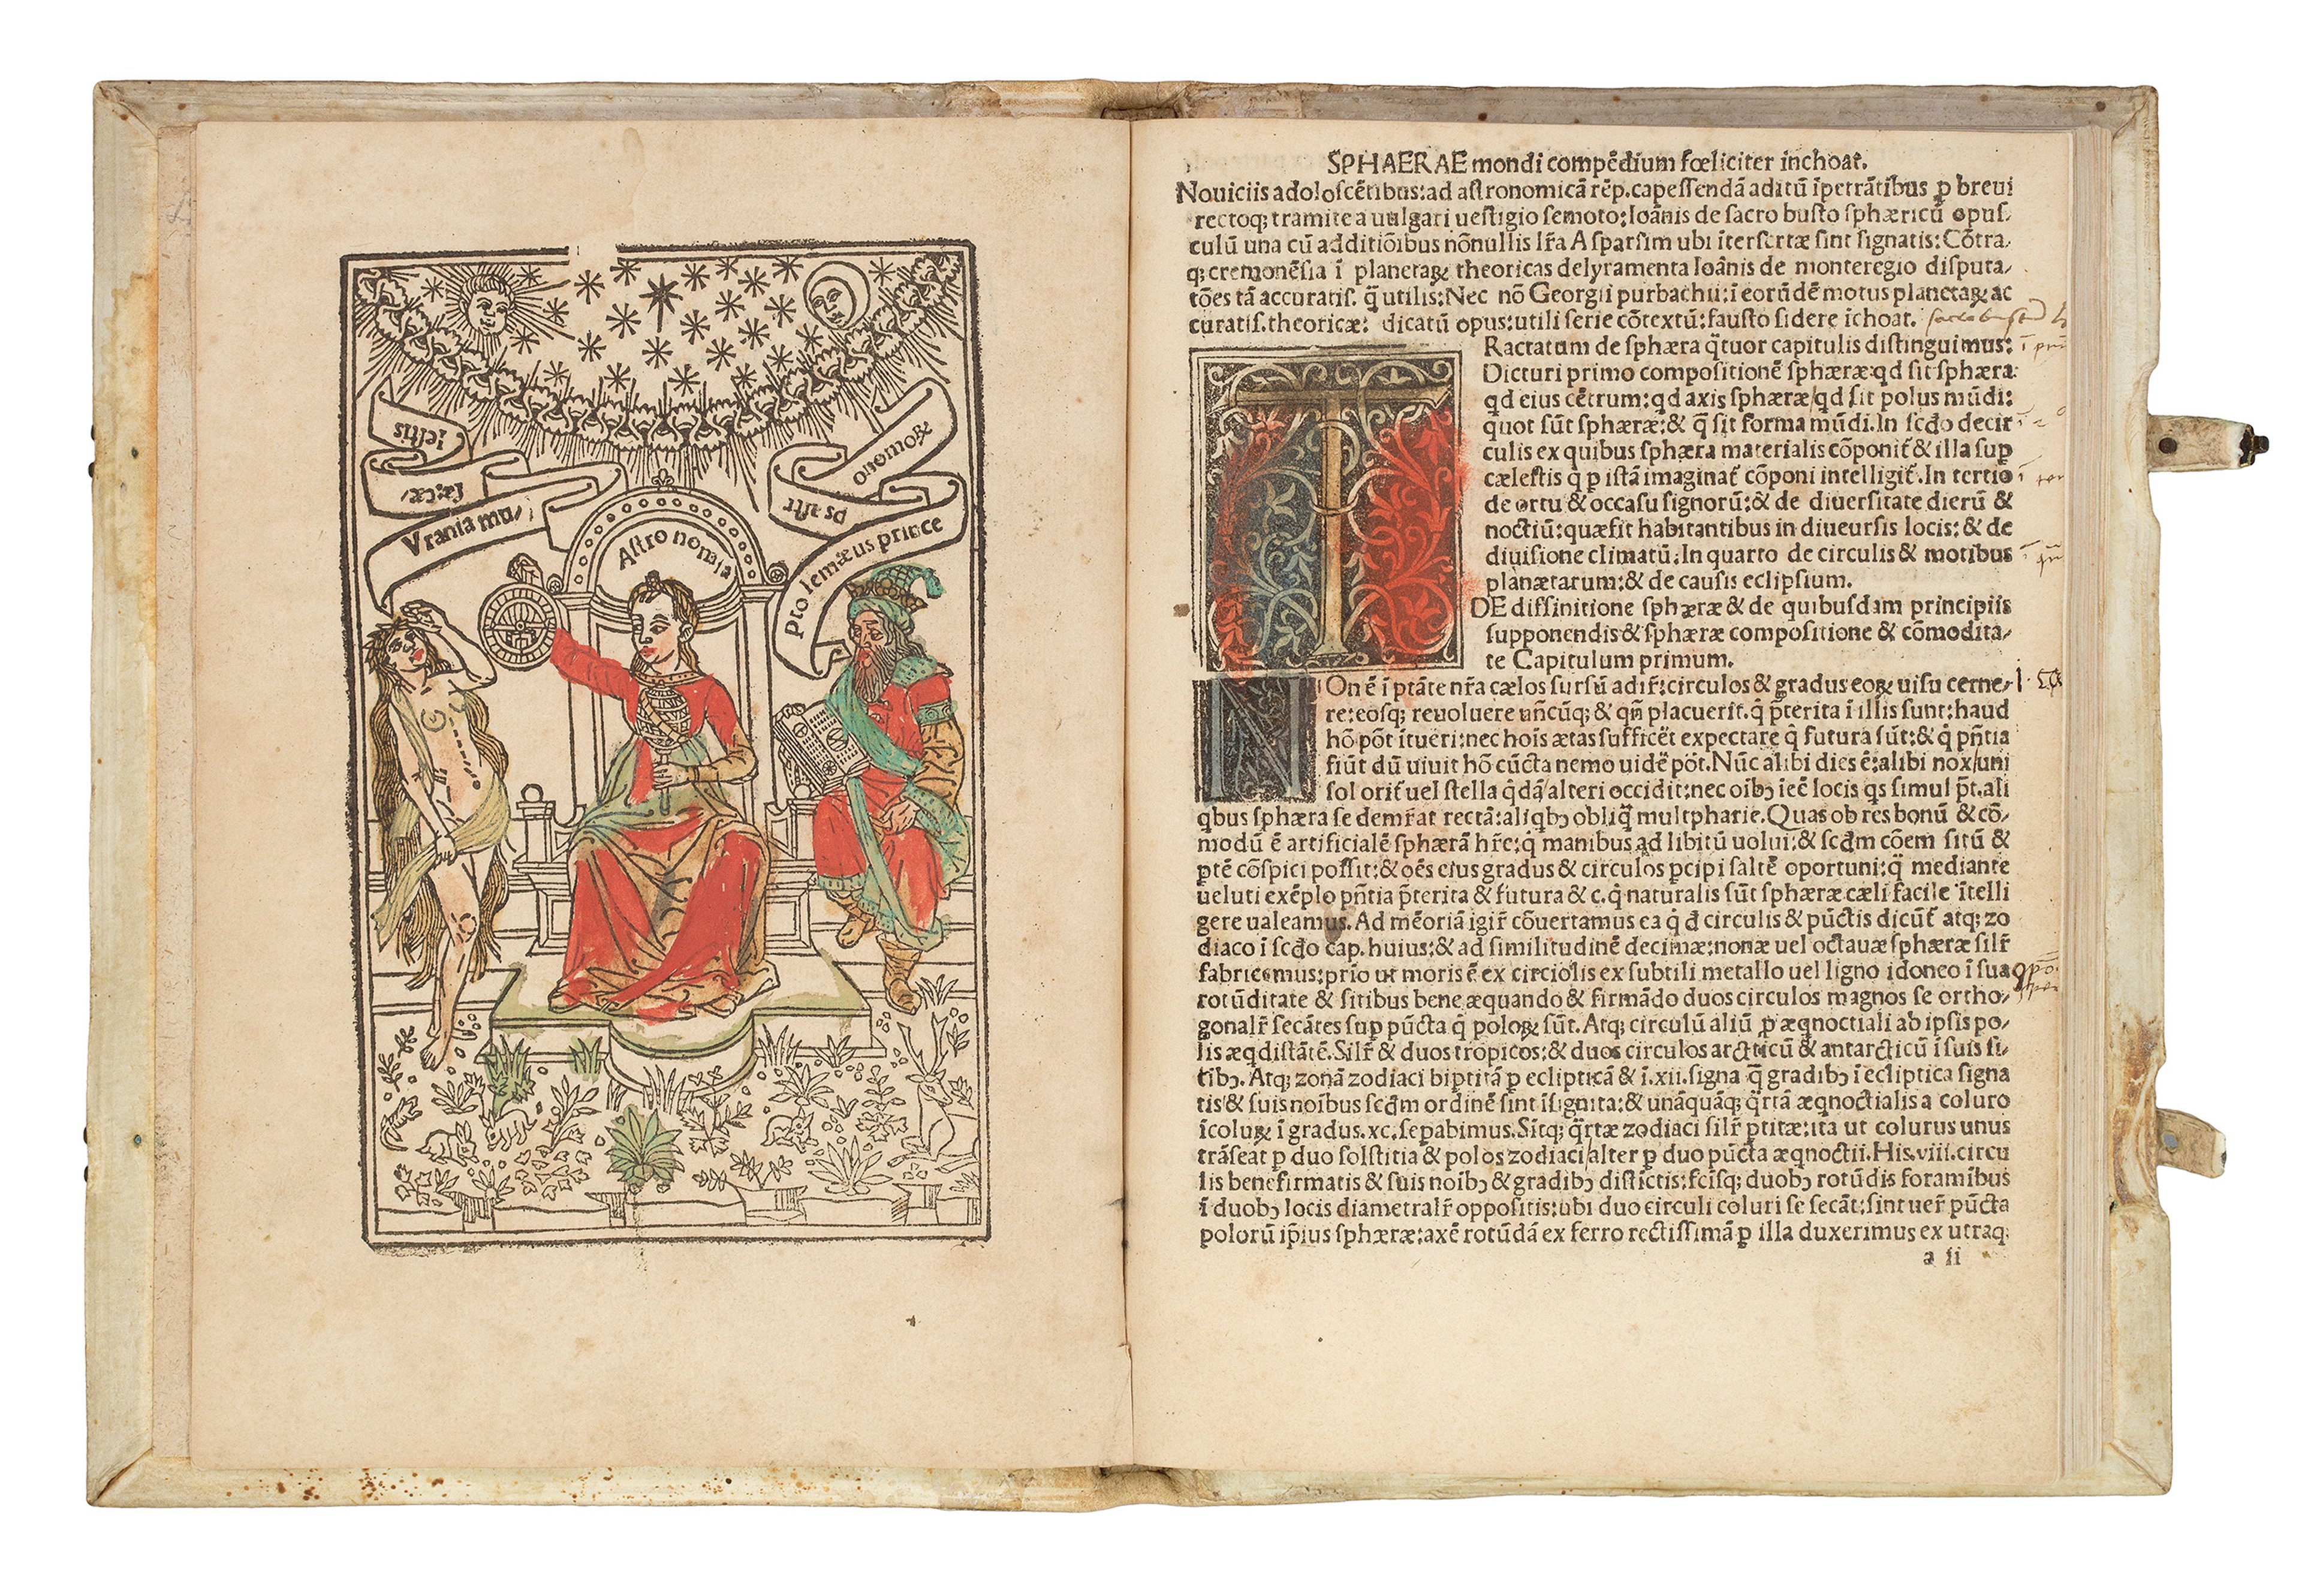 Vrania mu,
sæ:cæ,
lestis
Astro nomia
Pto lemæus prince
ps astr
onomoꝝ
SPHAERAE mondi compẽdium fœliciter inchoat.
Nouiciis adoloscẽtibus:ad astronomicã rẽp.capessendã aditũ ĩpetrãtibus ꝑ breui
rectoqꝫ tramite a uulgari uestigio semoto:Ioãnis de sacro busto sphæricũ opus,
culũ una cũ additiõibus nõnullis lr̃a A sparsim ubi ĩtersertæ sint signatis:Cõtra,
qꝫ cremonẽsia ĩ planetaꝝ theoricas delyramenta Ioãnis de monteregio disputa,
tões tã accuratis. q̃ utilis:Nec nõ Georgii purbachii:ĩ eorũdẽ motus planetaꝝ ac
curatis.theoricæ: dicatũ opus:utili serie cõtextũ:fausto sidere ĩchoat.
TRactatum de sphæra q̃tuor capitulis distinguimus:
Dicturi primo compositionẽ sphæræ:qd sit sphæra:
qd eius cẽtrum:qd axis sphæræ/qd sit polus mũdi:
quot sũt sphæræ:& q̃ sit forma mũdi.In scd̃o de cir
culis ex quibus sphæra materialis cõponit᷑ & illa sup
cælestis q̃ ꝑ istã imaginat᷑ cõponi intelligit᷑.In tertio
de ortu & occasu signorũ:& de diuersitate dierũ &
noctiũ:quæ fit habitantibus in diueursis locis:& de
diuisione climatũ:In quarto de circulis & motibus
planætarum:& de causis eclipsium.
DE diffinitione sphæræ & de quibusdam principiis
supponendis & sphæræ compositione & cõmodita,
te Capitulum primum.
NOn ẽ ĩ ptãte nr̃a cælos sursũ adir̃:circulos & gradus eoꝝ uisu cerne,
re:eosqꝫ reuoluere uñcũqꝫ & qñ placuerit.q̃ p̃terita ĩ illis sunt:haud
hõ põt ĩtueri:nec hoĩs ætas sufficẽt expectare q̃ futura sũt:& q̃ pñtia
fiũt dũ uiuit hõ cũcta nemo uidẽ põt.Nũc alibi dies ẽ:alibi nox/uni
sol orit᷑ uel stella q̃dã/alteri occidit:nec oĩbꝰ ĩeẽ locis qs simul p̃t.ali
qbus sphæra se demr̃at rectã:aliqbꝰ obliq̃ multpharie.Quas ob res bonũ & cõ,
modũ ẽ artificialẽ sphærã hr̃e:q̃ manibus ad libitũ uolui:& scd̃m cõem sitũ &
ptẽ cõspici possit:& oẽs eius gradus & circulos pcipi saltẽ oportuni:q̃ mediante
ueluti exẽplo pñtia p̃terita & futura & c.q̃ naturalis sũt sphæræ cæli facile ĩtelli
gere ualeamus.Ad mẽoriã igir᷑ cõuertamus ea q̃ d̃ circulis & pũctis dicũt᷑ atqꝫ zo
diaco ĩ scd̃o cap.huius:& ad similitudinẽ decimæ:nonæ uel octauæ sphæræ silr̃
fabricemus:prĩo ut moris ẽ ex circiolis ex subtili metallo uel ligno idoneo ĩ sua
rotũditate & sitibus bene æquando & firmãdo duos circulos magnos se ortho,
gonalr̃ secãtes sup pũcta q̃ poloꝝ sũt.Atqꝫ circulũ aliũ ꝑ æqnoctiali ab ipsis po,
lis æqdistãtẽ.Silr̃ & duos tropicos:& duos circulos arcticũ & antarcticũ ĩ suis si,
tibꝰ.Atqꝫ zonã zodiaci biptitã ꝑ eclipticã & ĩ.xii.signa q̃ gradibꝰ ĩ ecliptica signa
tis & suis noĩbus scd̃m ordinẽ sint ĩsignita:& unãquãqꝫ q̃rtã æqnoctialis a coluro
ĩ coluꝝ ĩ gradus.xc.sepabimus.Sitqꝫ q̃rtæ zodiaci silr̃ ptitæ:ita ut colurus unus
trãseat ꝑ duo solstitia & polos zodiaci/alter ꝑ duo pũcta æqnoctii.His.viii.circu
lis bene firmatis & suis noĩbꝰ & gradibꝰ distĩctis:fc̃isqꝫ duobꝰ rotũdis foramĩbus
ĩ duobꝰ locis diametralr̃ oppositis:ubi duo circuli coluri se secãt:sint uer᷑ pũcta
polorũ ip̃ius sphæræ:axẽ rotũdã ex ferro rectissimã ꝑ illa duxerimus ex utraqꝫ
a ii